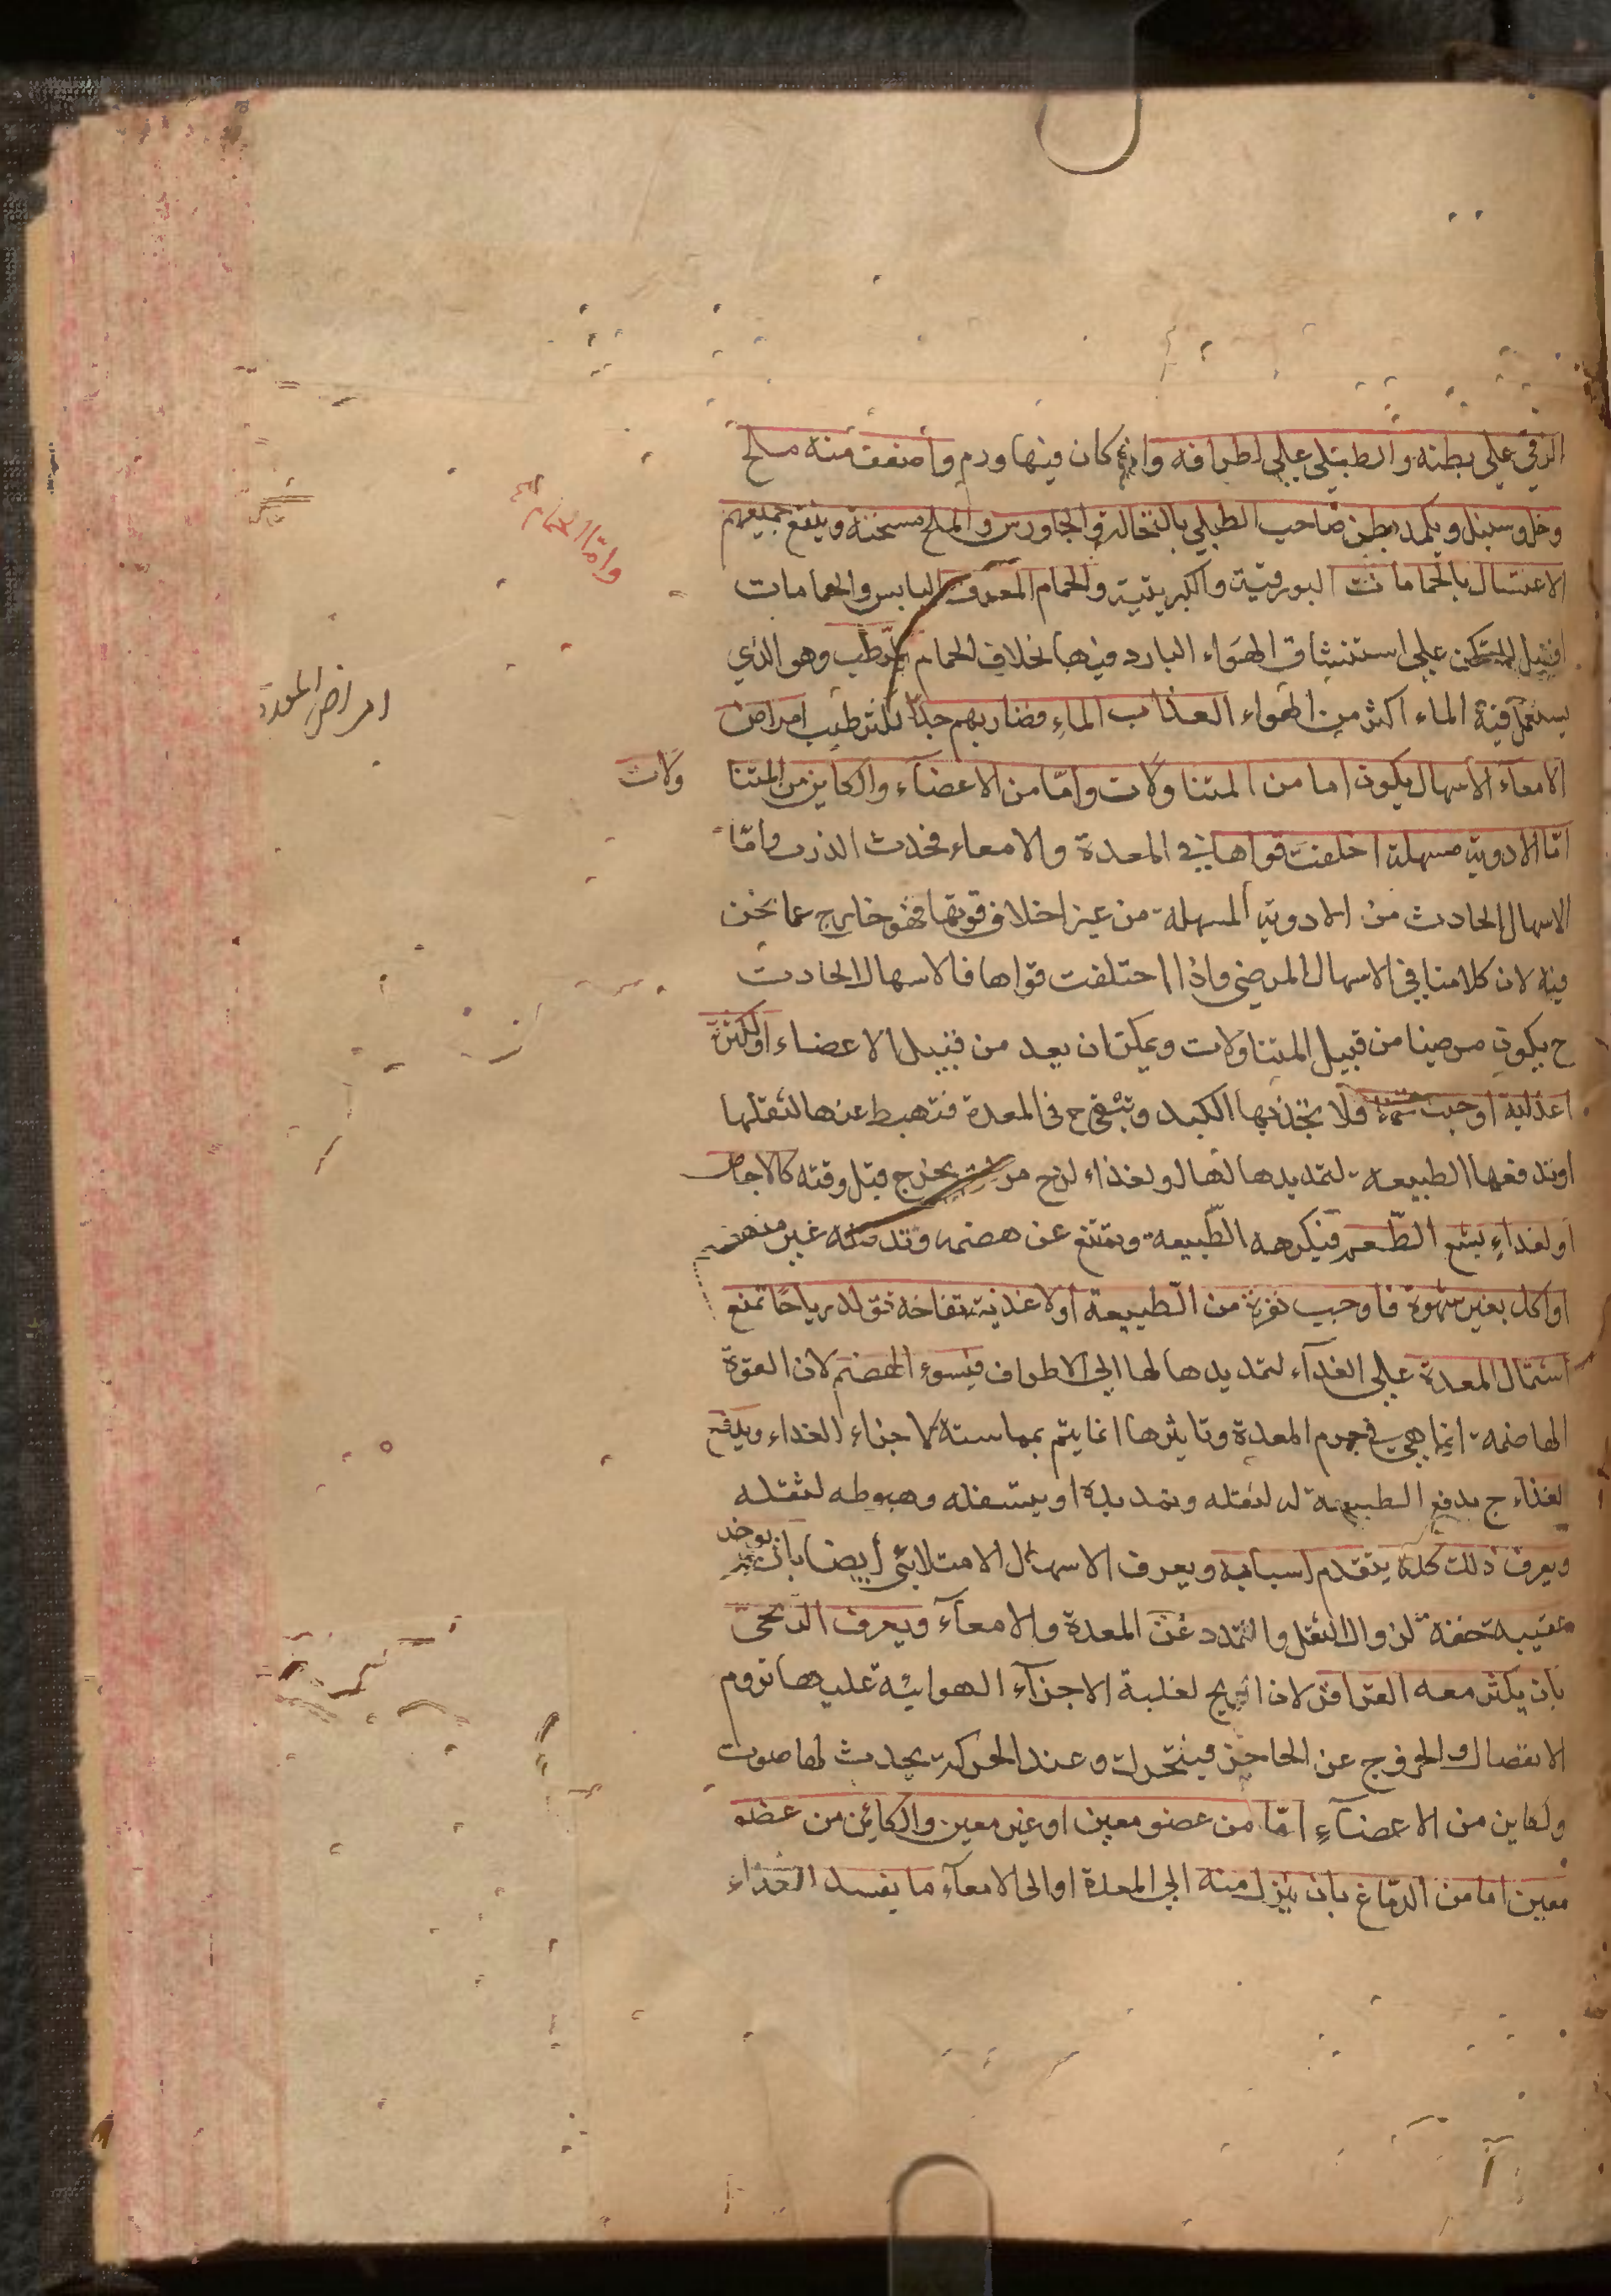 الزقي على بطنه والطبلي على اطرافه وان كان فيها ورم واضعف منه ملح
وخل وسنبل ويكمد بطن صاحب الطبلي بالنخالة والجاورس والملح مسخنة وينفع جميعهم
الاغتسال بالحمامات البورقية والكبريتية والحمام المعرق اليابس والحمامات
وامّا الحمام
افضل للتمكن على استنشاق الهواء البارد فيها بخلاف الحمام المرطب وهو الذي
امراض المعدة
يستعمل فيه الماء اكثر من الهواء العذاب الماء فضار بهم جدّا للترطيب امراض
الامعاء الاسهال يكون اما من المتناولات وامّا من الاعضاء والكاين من المتنا ولات
امّا لادوية مسهلة اختلفت قواها في المعدة والامعاء فحدث الذرب وامّا
الاسهال الحادث من الادوية المسهلة من غير اختلاف قوتها فهو خارج عما نحن
فيه لان كلامنا في الاسهال المرضي واذا اختلفت قواها فالاسهال الحادث
ح يكون مرضيا من قبيل المتناولات ويمكن ان يعد من قبيل الاعضاء او لكثرة
اغذية اوجبت تخمة فلا تجذبها الكبد وتبقى ح في المعدة فتهبط عنها لثقلها
او تدفعها الطبيعة لتمديدها لها او لغذاء لزج يخرج قبل وقته كالاجاص
او لغذاء بشع الطّعم فتكرهه الطّبيعة وتمتنع عن هضمه وتدفعه غير منهضم
او اكل بغير شهوة فاوجب نفرة من الطبيعة او لاغذية نفاخة تولد رياحًا تمنع
اشتمال المعدة على الغذآء لتمديدها لها الى الاطراف فيسوء الهضم لان القوة
الهاضمة انما هي في جرم المعدة وتاثيرها انما يتم بمماسته لاجزاء الغذاء ويدفع
لغذاء ح بدفع الطبيعة له لثقله وتمديده او يستفله وهبوطه لثقله
ويعرف ذلك كله بتقدم اسبابه ويعرف الاسهال الامتلائي أيضا بان يوخد
عقيبه خفة لزوال الثقل والتمدد عن المعدة والامعآء ويعرف الريحى
بان يكثر معه القراقر لان الريح لغلبة الاجزآء الهوائية عليها تروم
الانفصال والخروج عن الحاجز فيتحرك وعند الحركة يحدث لها صوت
ولكاين من الاعضآء امّا من عضو معين او غير معين والكائن من عضو
معين اما من الدّماغ بان ينزل منه الى المعدة او الى الامعآء ما يفسد الغذاء